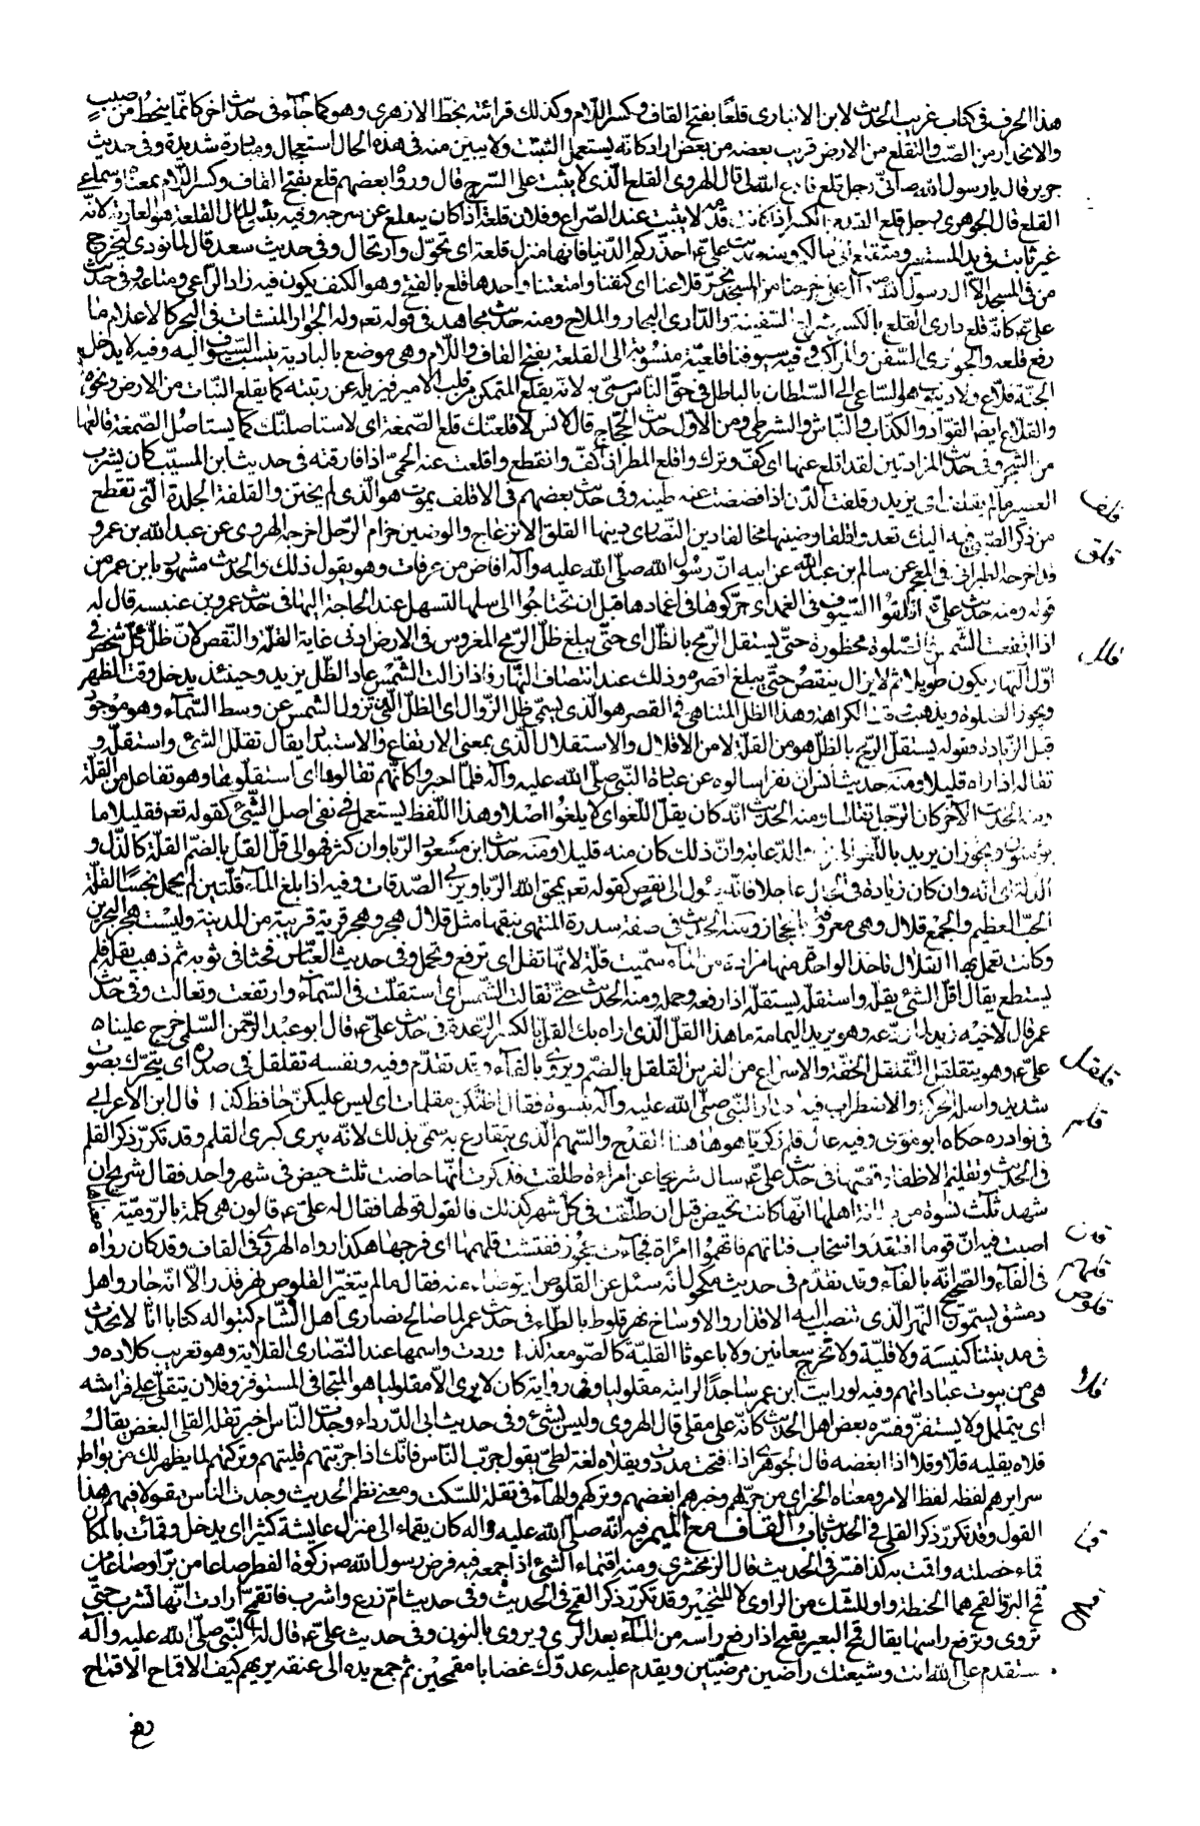 هذا الحرف فى كتاب غريب الحديث لابن الانبارى قلعًا بفتح القاف وكسر اللام وكذلك قرائته بخط الازهرى وهو كما جآء فى حديث اخر كانّما ينحطّ من صبب
والانحدار من الصبب والتقلع من الارض قريب بعضه من بعض اراد كانّه يستعمل التثبّت ولا يبين منه فى هذه الحال استعجال ومبادرة شديدة وفى حديث
جرير قال يا رسول الله صلى انّى رجل قلع فادع الله لى قال الهروى القلع الّذى لا يثبت على السّرج قال ورواه بعضهم قلع بفتح القاف وكسر اللام بمعناه وسماعى
القلع قال الجوهرى رجل قلع القدم بالكسر اذا كانت قدمه لا يثبت عند الصّراع وفلان قلعة اذا كان يتقلع عن سرجه وفيه بئس المال القلعة هو العارية لانّه
غير ثابت فى يد المستعير ومنه حديث على ع احذّركم الدّنيا فانها منزل قلعة اى تحوّل وارتحال وفى حديث سعد قال لمّا نودى ليخرج
من فى المسجد الا آل رسول الله صلى وآل على خرجنا من المسجد نجرّ قلاعنا اى كنفنا وامتعتنا واحدها قلع بالفتح وهو الكنف يكون فيه زاد الرّاعى ومتاعه وفى حديث
على ع كانّه قلع دارى القلع بالكسر شراع السّفينة والدّارى البحّار والملاح ومنه حديث مجاهد فى قوله تعه وله الجوار المنشات فى البحر كالاعلام ما
رفع قلعه والجوارى السّفن والمراكب وفيه سيوفنا قلعيّة منسوبة الى القلعة بفتح القاف واللّام وهى موضع بالبادية ينسب السّيوف اليه وفيه لا يدخل
الجنّة قلّاع ولا ديبوب هو السّاعى الى السّلطان بالباطل فى حقّ الناس سمّى به لانه يقلع المتمكن من قلب الامير فيزيله عن رتبته كما يقلع النّبات من الارض ونحوه
والقلاع ايضا القوّاد والكذّاب والنّباش والشرطى ومن الاوّل حديث الحجّاج قال لانس لاقلعنّك قلع الصّمغة اى لاستاصلنّك كما يستاصل الصّمغة قالعها
من الشجر وفى حديث المزادتين لقد اقلع عنها اى كفّ وترك واقلع المطر اذا كفّ وانقطع واقلعت عنه الحمّى اذا فارقته فى حديث ابن المسيّب كان يشرب
قلف العصير ما لم يقلف اى يزبد وقلفت الدّن اذا فضضت عنه طينه وفى حديث بعضهم فى الاقلف يموت هو الّذى لم يختن والقلفة الجلدة الّتى تقطع
قلق من ذكر الصّبى فيه اليك تعدو قلقا وضينها مخالفا دين النّصارى دينها القلق الانزعاج والوضين حزام الرّحل اخرجه الهروى عن عبد الله بن عمرو
وقد اخرجه الطبرانى فى المعجم عن سالم بن عبد الله عن ابيه انّ رسول الله صلّى الله عليه وآله افاض من عرفات وهو يقول ذلك والحديث مشهور بابن عمر من
قوله ومنه حديث على ع اقلقوا السّيوف فى الغمد اى حرّكوها فى اغمادها قبل ان تحتاجوا الى سلها لتسهل عند الحاجة اليها فى حديث عمرو بن عنبسه قال له
قلل اذا ارتفعت الشّمس فالصّلوة محظورة حتّى يستقل الرّمح بالظّل اى حتّى يبلغ ظلّ الرّمح المغروس فى الارض ادنى غاية القلّة والنّقص لانّ ظلّ كلّ شخص فى
اوّل النّهار يكون طويلا ثم لا يزال ينقص حتّى يبلغ اقصره وذلك عند انتصاف النّهار واذا زالت الشّمس عاد الظّل يزيد وحينئذ يدخل وقت الظهر
ويجوز الصّلوة ويذهب وقت الكراهة وهذا الظل المتناهى فى القصر هو الّذى يسمّى ظل الزّوال اى الظلّ الّذى تزول الشمس عن وسط السّمآء وهو موجود
قبل الزّيادة وقوله يستقل الرّمح بالظّل هو من القلّة لا من الاقلال والاستقلال الّذى بمعنى الارتفاع والاستبداد يقال تقلل الشئ واستقلّه و
تقاله اذا راه قليلا ومنه حديث انس ان نفرا سالوه عن عبادة النّبى صلّى الله عليه وآله فلمّا اخبروا كانّهم تقالوها اى استقلّوها وهو تفاعل من القلّة
ومنه الحديث الآخر كان الرّجل تقالها ومنه الحديث انّه كان يقلّ اللّغو اى لا يلغوا اصلا وهذا اللّفظ يستعمل فى نفى اصل الشّئ كقوله تعه فقليلا ما
يؤمنون ويجوز ان يريد باللّغو الهزل والدّعابة وانّ ذلك كان منه قليلا ومنه حديث ابن مسعود الرّبا وان كثر فهو الى قلّ القلّ بالضّم القلّة كالذّل و
الذلّة اى انّه وان كان زيادة فى المال عاجلا فانّه يؤل الى نقص كقوله تعه يمحق الله الرّبا ويربى الصّدقات وفيه اذا بلغ المآء قلّتين لم يحمل نجسًا القلّة
الحبّ العظيم والجمع قلال وهى معروفة بالحجاز ومنه الحديث فى صفة سدرة المنتهى نبقها مثل قلال هجر وهجر قرية قريبة من المدينة وليست هجر البحرين
وكانت تعمل بها القلال تاخذ الواحدة منها مزادة من المآء سمّيت قلّة لانّها تقل اى ترفع وتحمل وفى حديث العبّاس فحثا فى ثوبه ثم ذهب يقلّه فلم
يستطع يقال اقلّ الشئ يقلّه واستقلّه يستقلّه اذا رفعه وحمله ومنه الحديث حتّى تقالت الشّمس اى استقلّت فى السّمآء وارتفعت وتعالت وفى حديث
عمر قال لاخيه زيد لمّا ودّعه وهو يريد اليمامة ما هذا القلّ الّذى اراه بك القلّ بالكسر الرّعدة فى حديث على ع قال ابو عبد الرّحمن السّلمى خرج علينا
قلقل على ع وهو يتقلقل التّقلقل الخفّة والاسراع من الفرس القلقل بالضّم ويروى بالفآء وقد تقدّم وفيه ونفسه تقلقل فى صدره اى يتحرّك بصوت
شديد واصله الحركة والاضطراب فيه اجتاز النّبى صلّى الله عليه وآله بنسوة فقال اظنّكنّ مقلمات اى ليس عليكنّ حافظ كذا قال ابن الاعرابى
قلم فى نوادره حكاه ابو موسى وفيه عال قلم زكريّا هو هاهنا القدح والسّهم الّذى يتقارع به سمّى بذلك لانّه يبرى كبرى القلم وقد تكرّر ذكر القلم
فى الحديث وتقليم الاظفار قصّها فى حديث على ع سال شريحا عن امراة طلقت فذكرت انّها حاضت ثلث حيض فى شهر واحد فقال شريح ان
شهد ثلث نسوة من بطانة اهلها انّها كانت تحيض قبل ان طلّقت فى كلّ شهر كذلك فالقول قولها فقال له على ع قالون هى كلمة بالرّوميّة معناه
قلن اصبت فيه انّ قوما افتقدوا سخاب فتاتهم فاتّهموا امراة فجآءت عجوز ففتشت قلهمها اى فرجها هكذا رواه الهروى فى القاف وقد كان رواه
قلهم فى الفآء والصّحيح انّه بالفآء وقد تقدّم فى حديث مكحول انّه سئل عن القلوص ايتوضّاء منه فقال ما لم يتغيّر القلوص نهر قذر الّا انّه جار واهل
قلوص دمشق يسمّون النّهر الّذى تنصب اليه الاقذار والاوساخ نهر قلوط بالطّآء فى حديث عمر لمّا صالح نصارى اهل الشّام كتبوا له كتابا انّا لا نحدث
فى مدينتنا كنيسة ولا قليّة ولا نخرج سعانين ولا باعوثا القليّة كالصّومعة كذا وردت واسمها عند النّصارى القلاية وهو تعريب كلاده و
قلا هى من بيوت عباداتهم وفيه لو رايت ابن عمر ساجدًا لرايته مقلوليا وفى رواية كان لا يرى الّا مقلوليا هو المتجافى المستوفز وفلان يتقلّى على فراشه
اى يتململ ولا يستقرّ وفسّره بعض اهل الحديث كانّه على مقلى قال الهروى وليس بشئ وفى حديث ابى الدّرداء وجدت النّاس اخبر تقله القلى البغض يقال
قلاه يقليه قلًا وقلاءً اذا ابغضه قال الجوهرى اذا فتحت مددت ويقلاه لغة لطىّ يقول جرّب النّاس فانّك اذا جرّبتهم قليتهم وتركتهم لما يظهر لك من بواطن
سرايرهم لفظه لفظ الامر ومعناه الخبر اى من جرّبهم وخبرهم ابغضهم وتركهم والهآء فى تقله للسّكت ومعنى نظم الحديث وجدت الناس مقولا فيهم هذا
قما القول وقد تكرّر ذكر القلى فى الحديث باب القاف مع الميم فيه انّه صلّى الله عليه واله كان يقماء الى منزل عايشة كثيرا اى يدخل وقمات بالمكان
قماء دخلته واقمت به كذا فسّر فى الحديث قال الزمخشرى ومنه اقتماء الشئ اذا جمعه فيه فرض رسول الله صلى زكوة الفطر صاعا من برّ او صاعا من
قمح قمح البرّ والقمح هما الحنطة واو للشّك من الراوى لا للتخيير وقد تكرّر ذكر القمح فى الحديث وفى حديث امّ زرع واشرب فاتقمّح ارادت انّها تشرب حتّى
تروى وترفع راسها يقال قمح البعير يقمح اذا رفع راسه من المآء بعد الرّى ويروى بالنون وفى حديث على ع قال له النّبى صلّى الله عليه وآله
ستقدم على الله انت وشيعتك راضين مرضيّين ويقدم عليه عدوّك غضابا مقمحين ثم جمع يده الى عنقه يريهم كيف الاقماح الاقماح